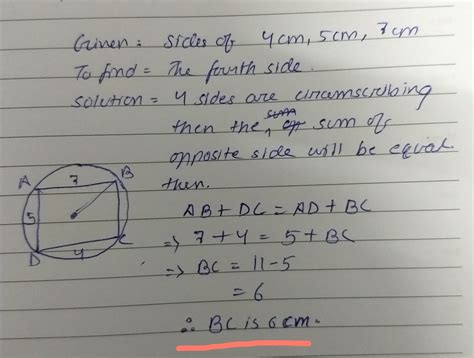 Given: sides of 4cm, 5cm, 7cm
To find = The fourth side.
solution = 4 sides are circumscribing
sum
then the, sum of
opposite side will be equal.
then.
AB + DC = AD + BC
=> 7 + 4 = 5 + BC
=> BC = 11 - 5
= 6
∴ BC is 6cm.
A 7 B
5
D 4 C